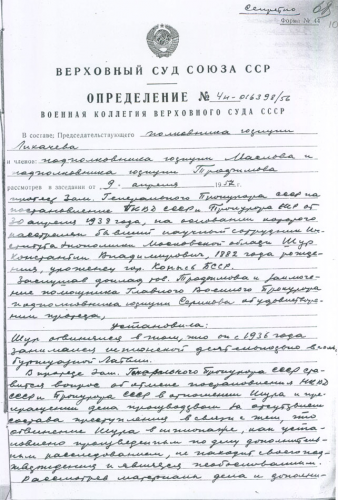 Секретно
Форма № 44
ВЕРХОВНЫЙ СУД СОЮЗА ССР
ОПРЕДЕЛЕНИЕ № 4н-016398/56
ВОЕННАЯ КОЛЛЕГИЯ ВЕРХОВНОГО СУДА СССР
В составе: Председательствующего полковника юстиции
Лихачева
и членов: подполковника юстиции Маслова и
подполковника юстиции
рассмотрев в заседании от 9 апреля
протест Зам. Генерального Прокурора СССР на
постановление НКВД СССР и Прокурора СССР от
апреля 1938 года, на основании которого
расстрелян бывший научный сотрудник
экономики Московской области Шур
Константин Владимирович, 1882 года рожде-
ния, уроженец гор. Копысь БССР.
Заслушав доклад тов. и заключение
помощника Главного Военного Прокурора
подполковника юстиции об удовлетво-
рении протеста,
установила:
обвинялся в том, что он с 1936 года
занимался шпионской деятельностью в пользу
Латвии.
В протесте Зам. Прокурора СССР ста-
вится вопрос об отмене постановления НКВД
СССР и Прокурора СССР в отношении и пре-
кращении дела производством за отсутствием
состава преступления в связи с тем, что
обвинение в шпионаже, как уста-
новлено произведенным по делу дополнитель-
ным расследованием, не находит своего под-
тверждения и является необоснованным.
Рассмотрев материалы дела и дополни-